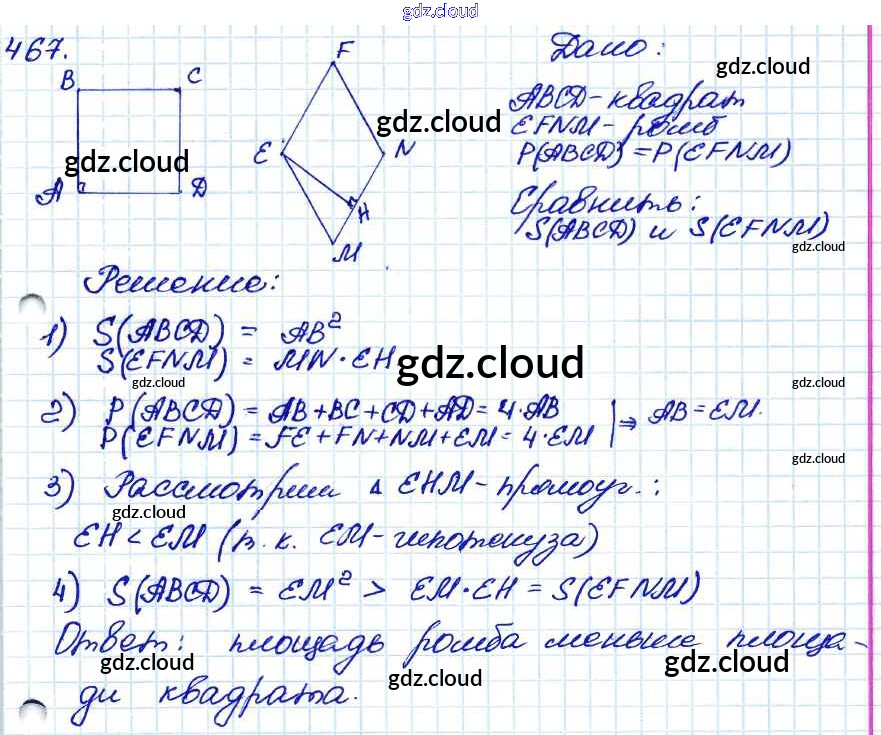 gdz.cloud
467.
B C
A D
F
E N
H
M
Дано:
ABCD - квадрат
EFNM - ромб
P(ABCD) = P(EFNM)
Сравнить:
S(ABCD) и S(EFNM)
Решение:
1) S(ABCD) = AB²
S(EFNM) = MN · EH
2) P(ABCD) = AB+BC+CD+AD = 4·AB
P(EFNM) = FE+FN+NM+EM = 4·EM | ⇒ AB = EM.
3) Рассмотрим Δ EHM - прямоуг.:
EH < EM (т.к. EM - гипотенуза)
4) S(ABCD) = EM² > EM·EH = S(EFNM)
Ответ: площадь ромба меньше площа-
ди квадрата.
gdz.cloud
gdz.cloud
gdz.cloud
gdz.cloud
gdz.cloud
gdz.cloud
gdz.cloud
gdz.cloud
gdz.cloud
gdz.cloud
gdz.cloud
gdz.cloud